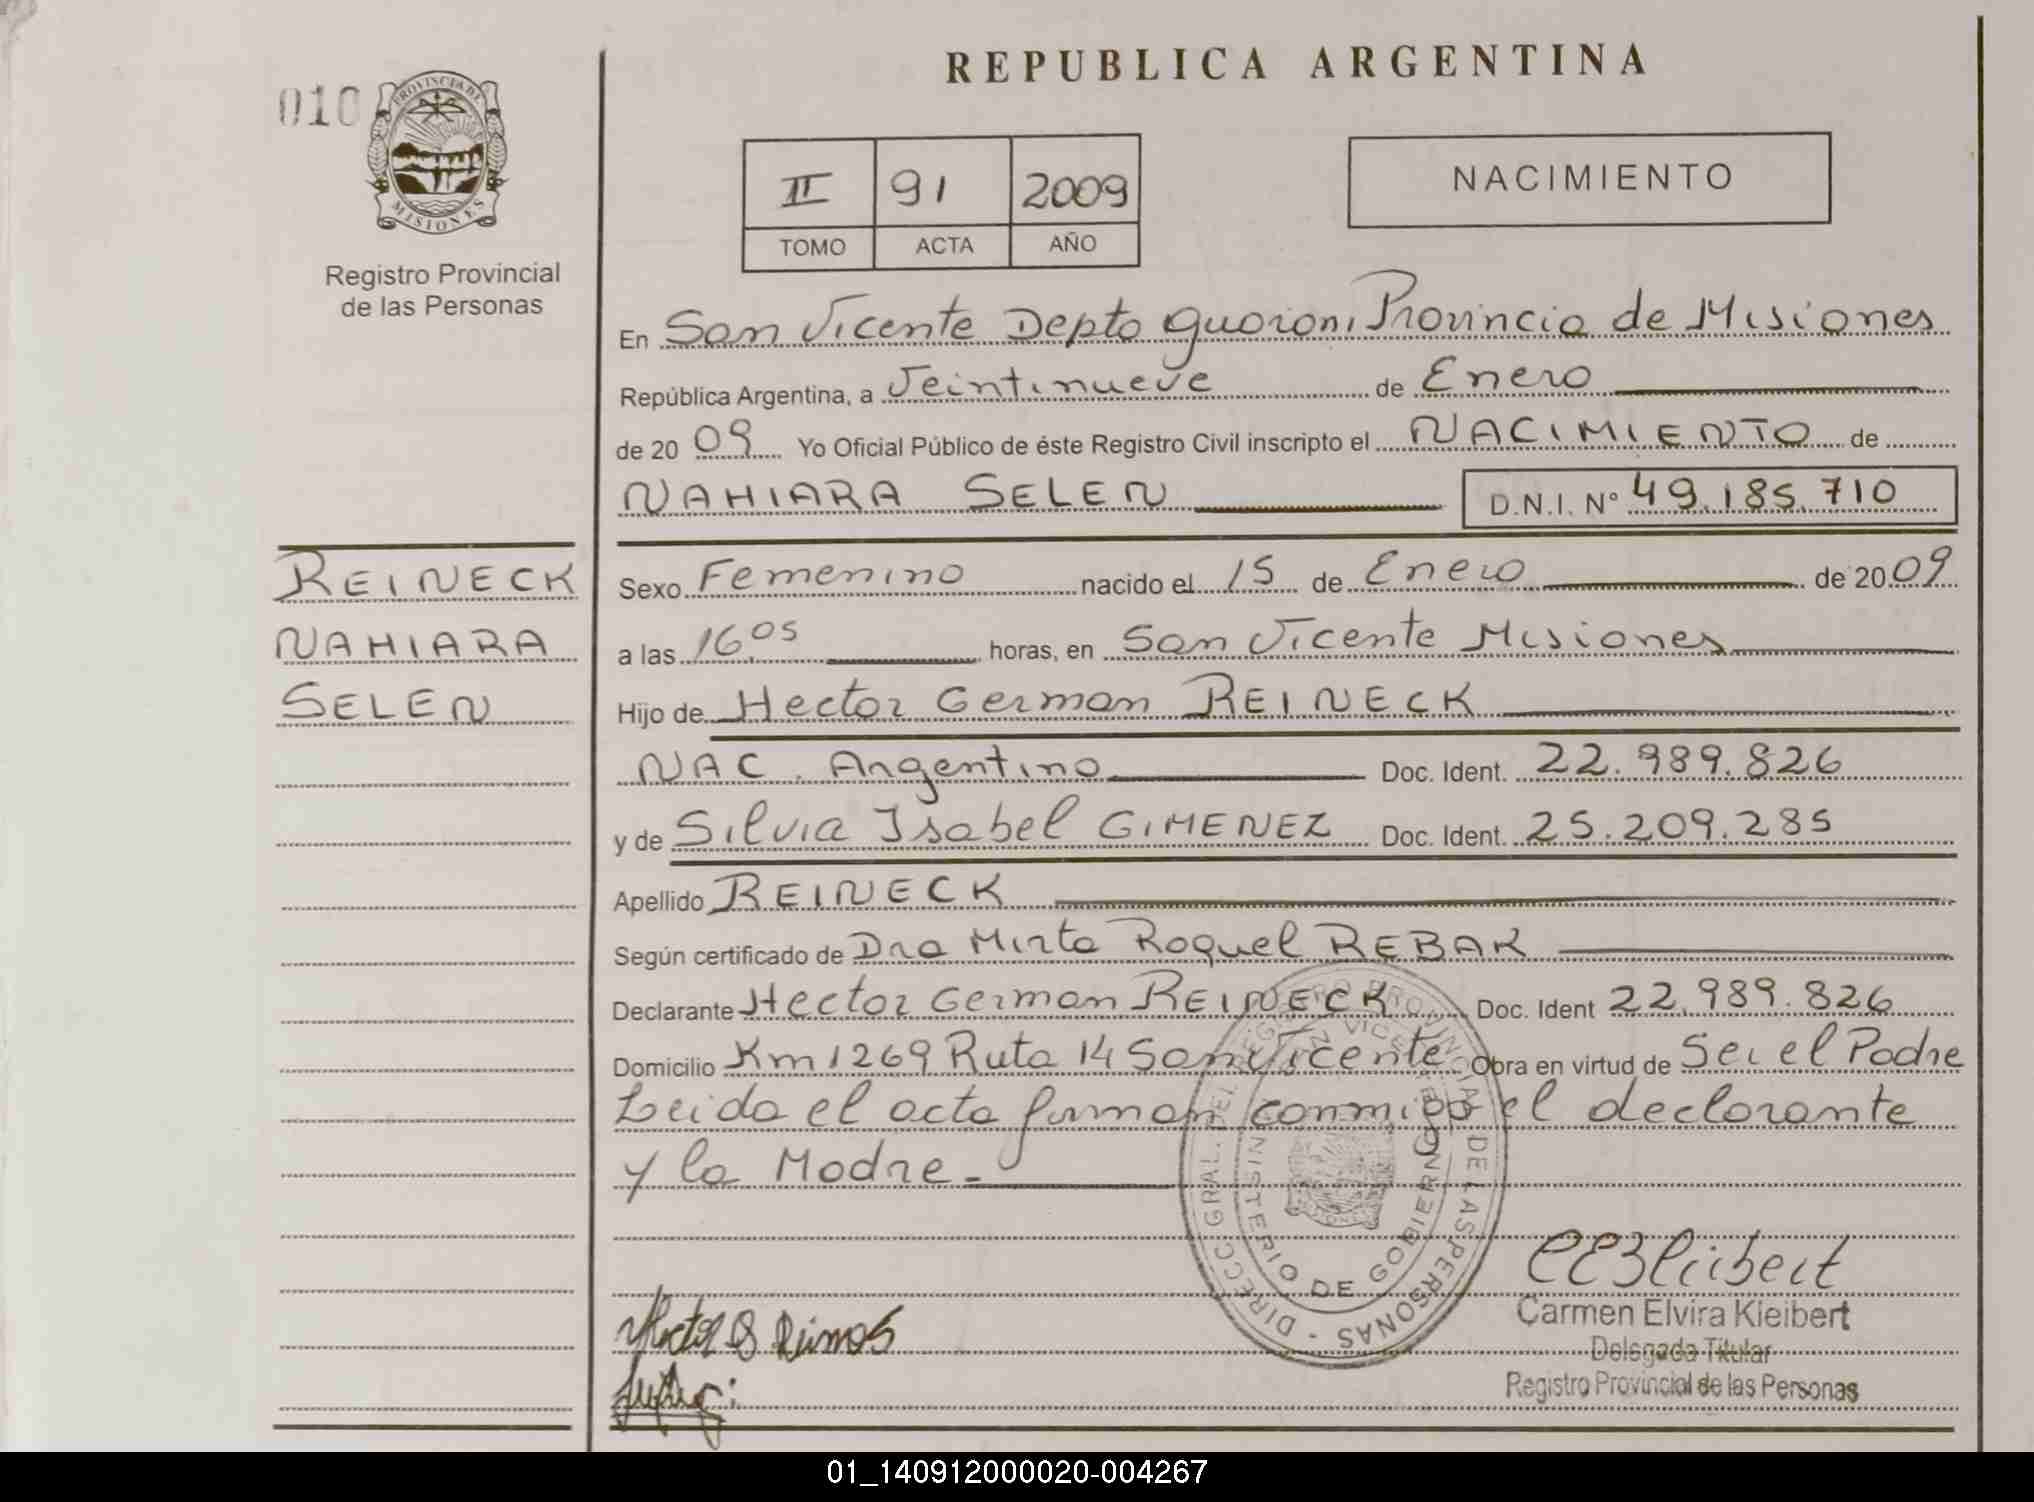 REPUBLICA ARGENTINA
010
PROVINCIA DE
MISIONES
Registro Provincial
de las Personas
II 91 2009
TOMO ACTA AÑO
NACIMIENTO
En San Vicente Depto Guarani Provincia de Misiones
República Argentina, a Veintinueve de Enero
de 2009 Yo Oficial Público de éste Registro Civil inscripto el NACIMIENTO de
NAHIARA SELEN D.N.I. Nº 49.185.710
REINECK
NAHIARA
SELEN
Sexo Femenino nacido el 15 de Enero de 2009
a las 16.05 horas, en San Vicente Misiones
Hijo de Hector German REINECK
NAC. Argentino Doc. Ident. 22.989.826
y de Silvia Isabel GIMENEZ Doc. Ident. 25.209.285
Apellido REINECK
Según certificado de Dra Mirta Raquel REBAK
Declarante Hector German REINECK Doc. Ident 22.989.826
Domicilio Km 1269 Ruta 14 San Vicente Obra en virtud de Ser el Padre
Leida el acta firman conmigo el declarante
y la Madre.-
DIRECC. GRAL. DEL REGISTRO PROVINCIAL DE LAS PERSONAS -
SAN VICENTE
MINISTERIO DE GOBIERNO
Carmen Elvira Kleibert
Delegada Titular
Registro Provincial de las Personas
01_140912000020-004267